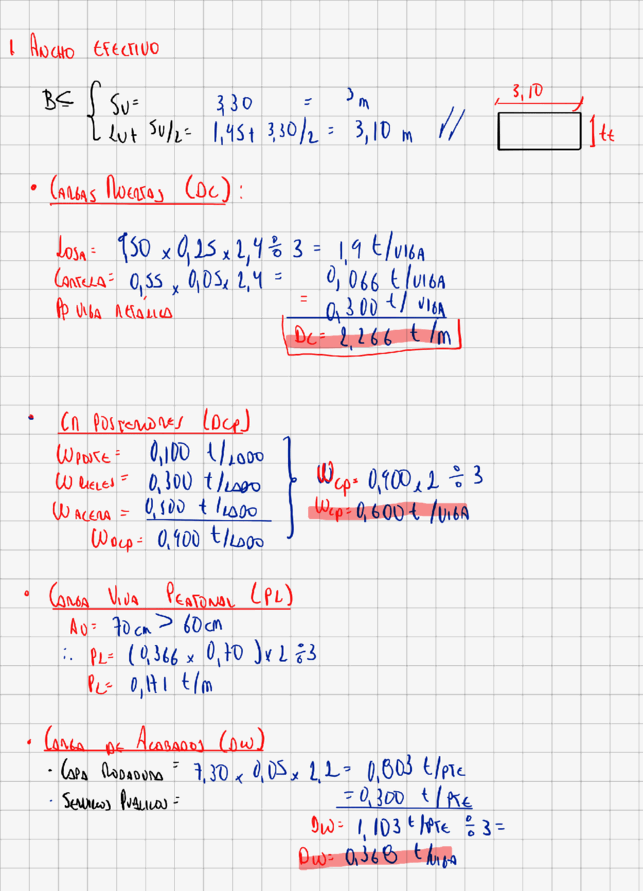 1 ANCHO EFECTIVO
B≤ { SV= 3,30 = 3 m
LV+ SV/2= 1,45+ 3,30/2 = 3,10 m //
3,10
tt
• CARGAS MUERTAS (DC):
LOSA= 9,50 x 0,25 x 2,4 ÷ 3 = 1,9 t/VIGA
CARTELA= 0,55 x 0,05 x 2,4 = 0,066 t/VIGA
PP VIGA METÁLICA = 0,300 t/VIGA
DC= 2,266 t/m
• CM POSTERIORES (DCP)
WPOSTE= 0,100 t/LADO
W RIELES= 0,300 t/LADO
W ACERA= 0,500 t/LADO
WDCP= 0,900 t/LADO
WCP= 0,900 x 2 ÷ 3
WCP= 0,600 t/VIGA
• CARGA VIVA PEATONAL (PL)
AU= 70cm > 60cm
∴ PL= (0,366 x 0,70) x 2 ÷ 3
PL= 0,171 t/m
• CARGA DE ACABADOS (DW)
· CAPA RODADURA = 7,30 x 0,05 x 2,2 = 0,803 t/PTE
· SERVICIOS PUBLICOS = = 0,300 t/PTE
DW= 1,103 t/PTE ÷ 3=
DW= 0,368 t/VIGA